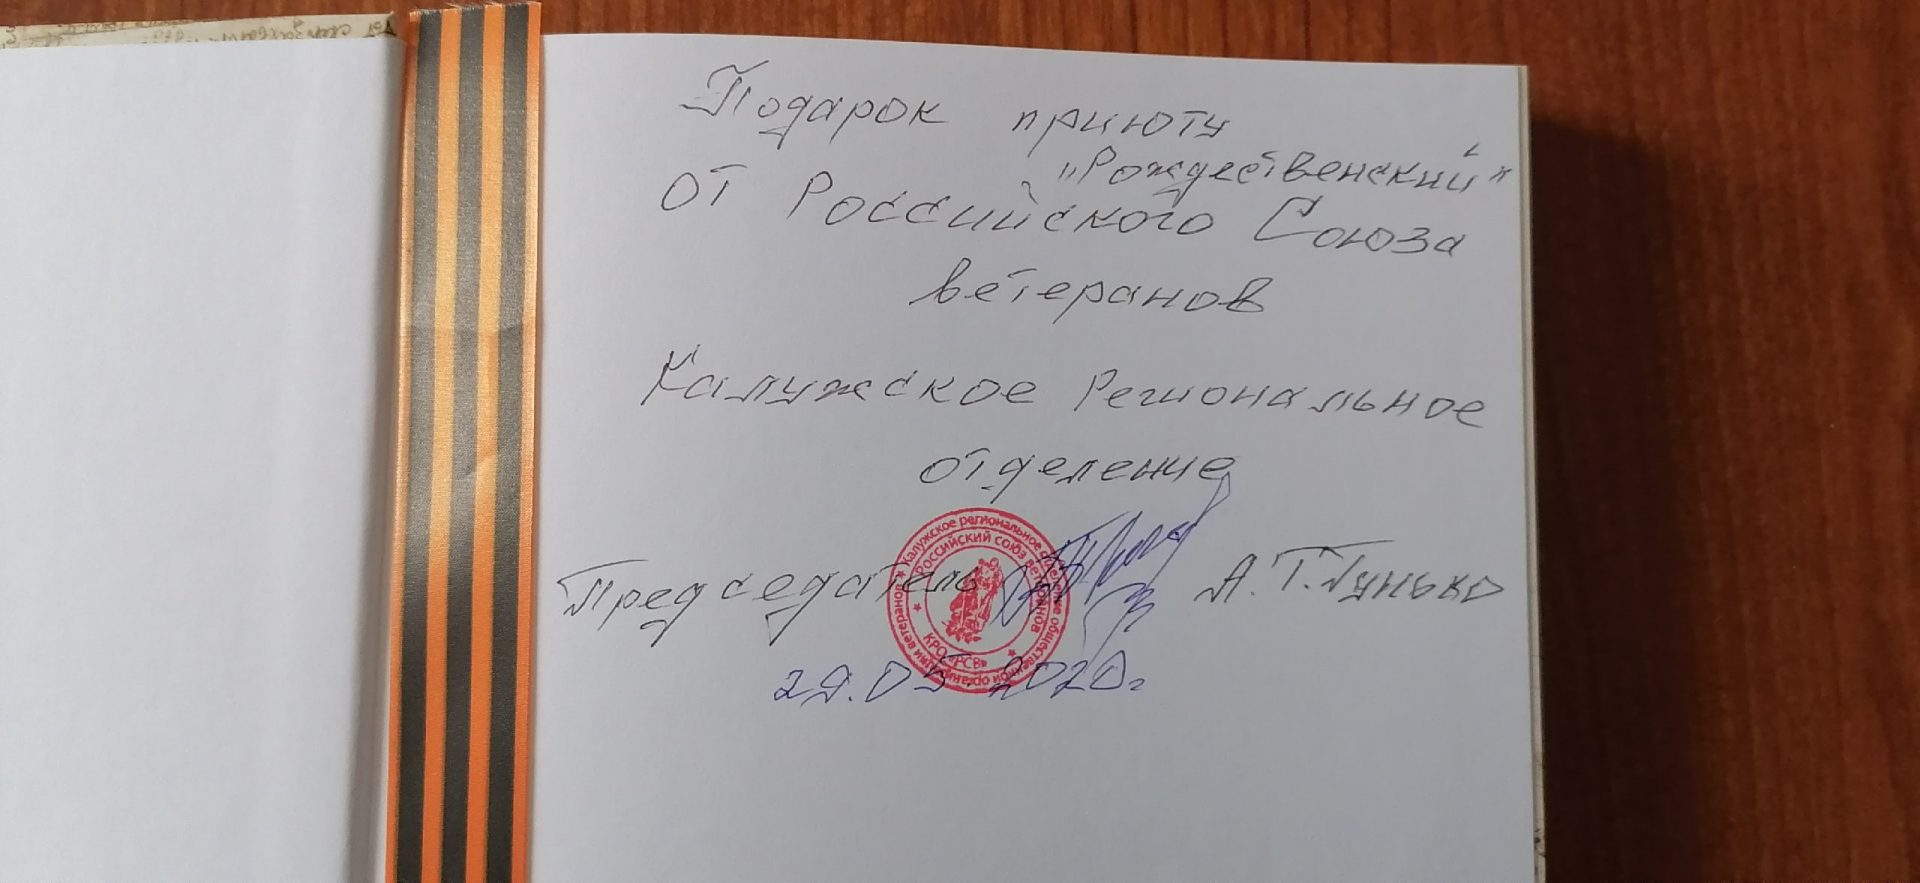 Подарок приюту
"Рождественский"
от Российского Союза
ветеранов
Калужское Региональное
отделение
Председатель А.Т. Гунько
29.05.2020г
Калужское региональное отделение общественной организации ветеранов
Российский союз ветеранов
КРО «РСВ»